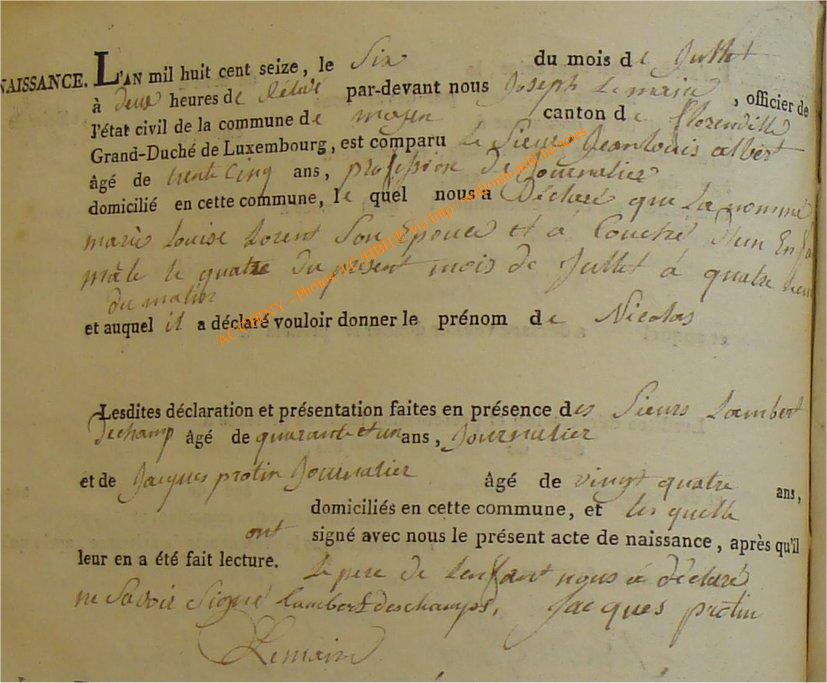 NAISSANCE. L'AN mil huit cent seize, le Six du mois de Jullet
à deux heures de par-devant nous Joseph Lemaire, officier de
l'état civil de la commune de moyen canton de florenville
Grand-Duché de Luxembourg, est comparu le Sieur Jean louis albert
âgé de trente Cinq ans, profession de Journalier
domicilié en cette commune, le quel nous a Déclaré que La nommé
marie Louise Lorent Son Epouce et à Couché d'un Enfan
mâle le quatre du présent mois de Jullet à quatre heur
du matin
et auquel il a déclaré vouloir donner le prénom de Nicolas
Lesdites déclaration et présentation faites en présence des Sieurs Lambert
dechamp âgé de quarant et un ans, Journalier
et de Jacques protin Journalier âgé de vingt quatre ans,
domiciliés en cette commune, et les quelle
ont signé avec nous le présent acte de naissance, après qu'il
leur en a été fait lecture. Le pere de Lenfant nous à déclaré
ne Savoir Signé Lambert deschamps, Jacques protin
Lemaire